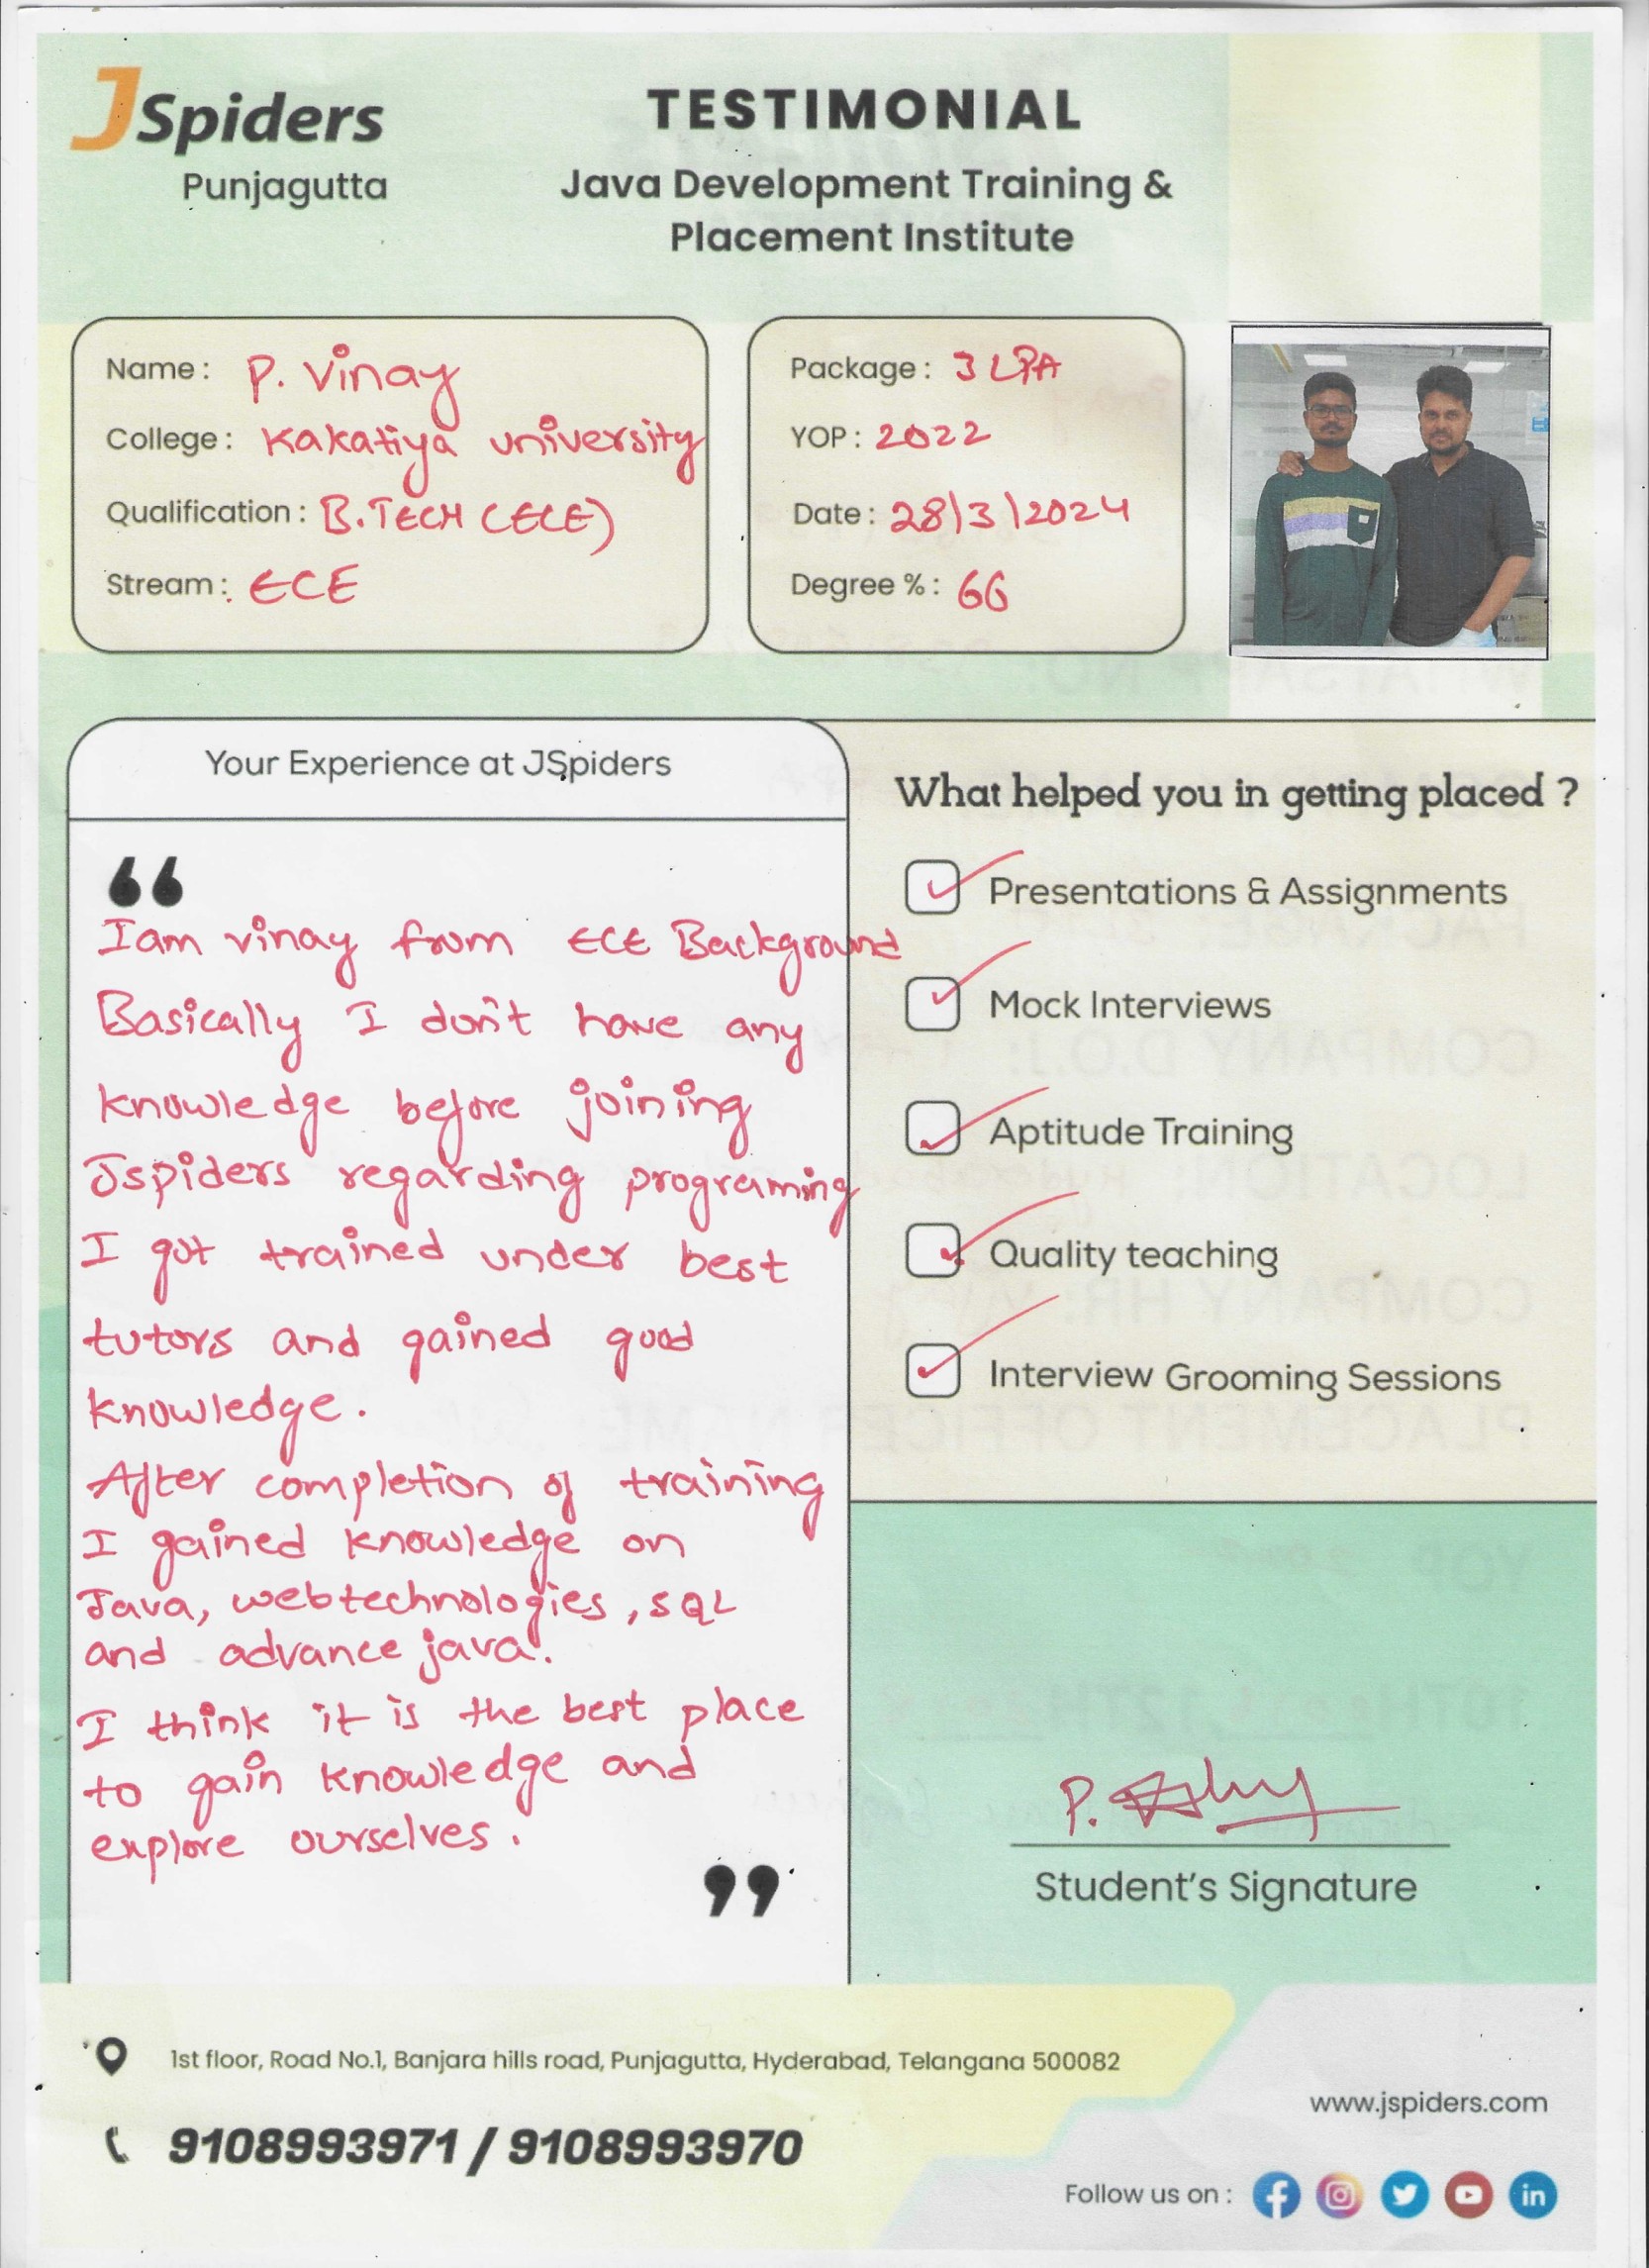 JSpiders
Punjagutta
TESTIMONIAL
Java Development Training &
Placement Institute
Name : P. Vinay
College : Kakatiya university
Qualification : B.TECH (ECE)
Stream : ECE
Package : 3 LPA
YOP : 2022
Date : 28/3/2024
Degree % : 66
Your Experience at JSpiders
“
Iam vinay from ECE Background
Basically I don't have any
knowledge before joining
Jspiders regarding programing
I got trained under best
tutors and gained good
knowledge.
After completion of training
I gained knowledge on
Java, webtechnologies, SQL
and advance java.
I think it is the best place
to gain knowledge and
explore ourselves.
”
What helped you in getting placed ?
Presentations & Assignments
Mock Interviews
Aptitude Training
Quality teaching
Interview Grooming Sessions
P.
Student's Signature
1st floor, Road No.1, Banjara hills road, Punjagutta, Hyderabad, Telangana 500082
9108993971 / 9108993970
www.jspiders.com
Follow us on :